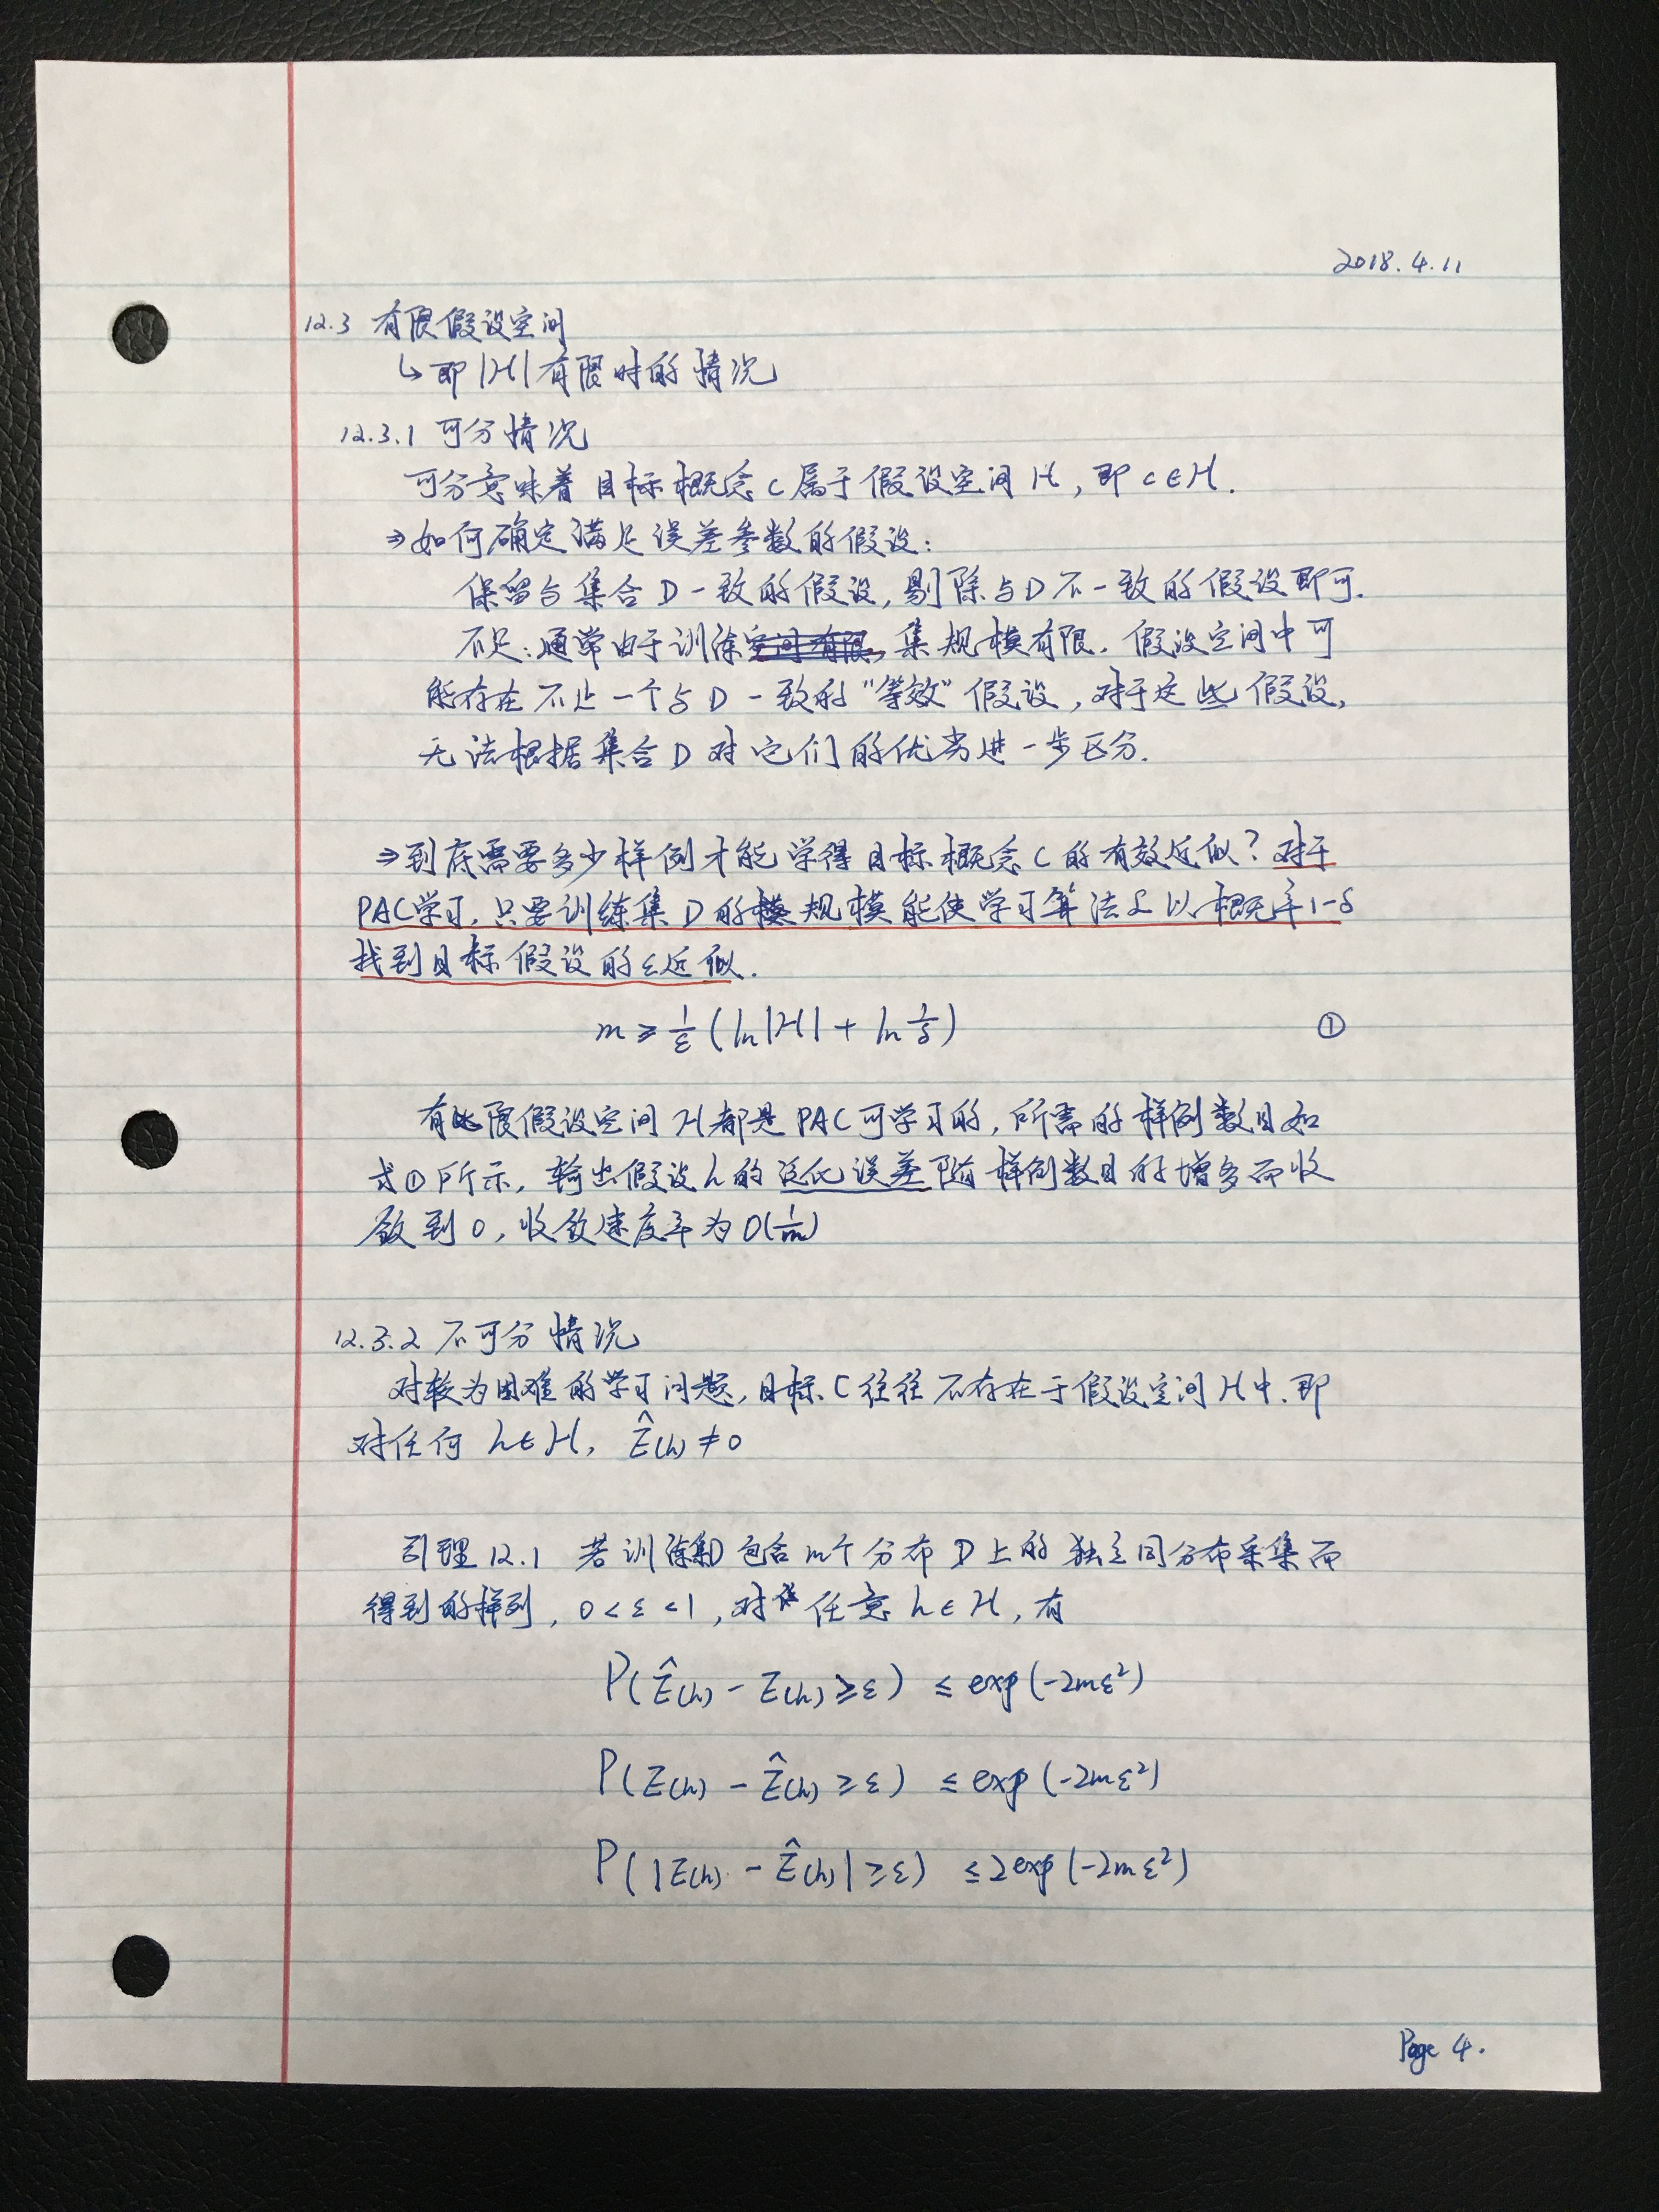 2018.4.11
12.3 有限假设空间
↳ 即 |H| 有限时的情况
12.3.1 可分情况
可分意味着目标概念 c 属于假设空间 H, 即 c∈H.
⇒ 如何确定满足误差参数的假设:
保留与集合 D 一致的假设, 剔除与 D 不一致的假设即可.
不足: 通常由于训练集规模有限. 假设空间中可
能存在不止一个与 D 一致的 "等效" 假设, 对于这些假设,
无法根据集合 D 对它们的优劣进一步区分.
⇒ 到底需要多少样例才能学得目标概念 c 的有效近似? 对于
PAC学习, 只要训练集 D 的规模能使学习算法 L 以概率 1-δ
找到目标假设的 ε 近似.
m ≥ 1/ε (ln|H| + ln 1/δ) ①
有限假设空间 H 都是 PAC 可学习的, 所需的样例数目如
式①所示, 输出假设 h 的泛化误差随样例数目的增多而收
敛到 0, 收敛速度率为 O(1/m)
12.3.2 不可分情况
对较为困难的学习问题, 目标 C 往往不存在于假设空间 H 中. 即
对任何 h∈H, Ê(h) ≠ 0
引理 12.1 若训练集D包含 m个分布 D 上的独立同分布采集而
得到的样列, 0<ε<1, 对任意 h∈H, 有
P(Ê(h) - E(h) ≥ ε) ≤ exp(-2mε²)
P(E(h) - Ê(h) ≥ ε) ≤ exp(-2mε²)
P(|E(h) - Ê(h)| ≥ ε) ≤ 2exp(-2mε²)
Page 4.